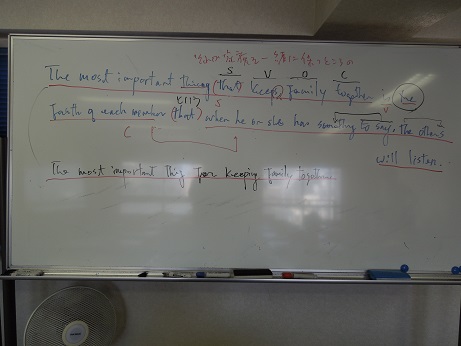 S V O C
The most important thing (that keeps) family together is the
という
faith of each member (that) when he or she has something to say, the others
S V
C
will listen.
The most important thing for keeping family together